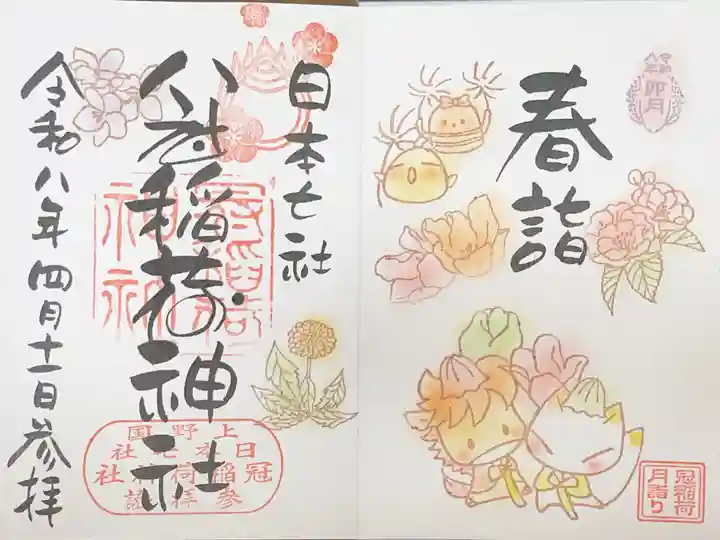 令和八年
卯月
春詣
冠稲荷
月詣り
日本七社
冠稲荷神社
上野国
日本七社
冠稲荷神社
参拝証
令和八年四月十一日参拝